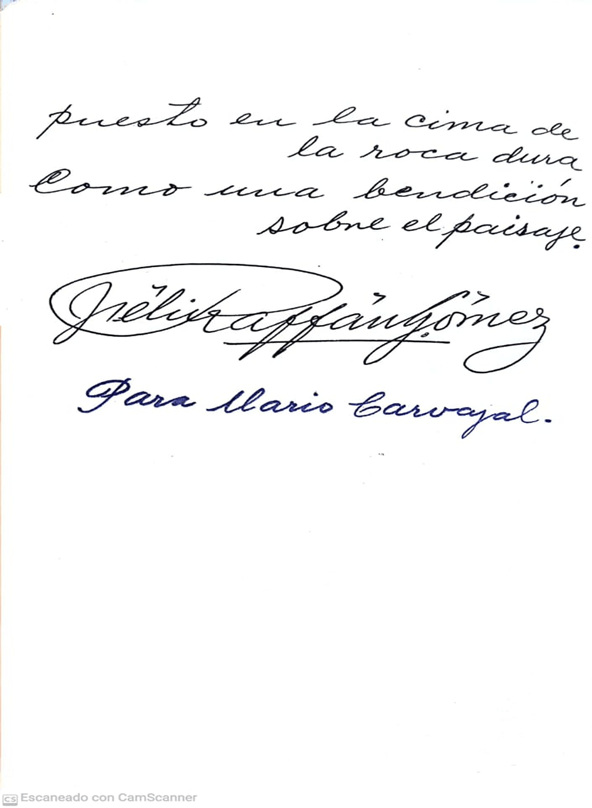 puesto en la cima de
la roca dura
Como una bendición
sobre el paisaje.
Félix Raffán Gómez
Para Mario Carvajal.
CS Escaneado con CamScanner